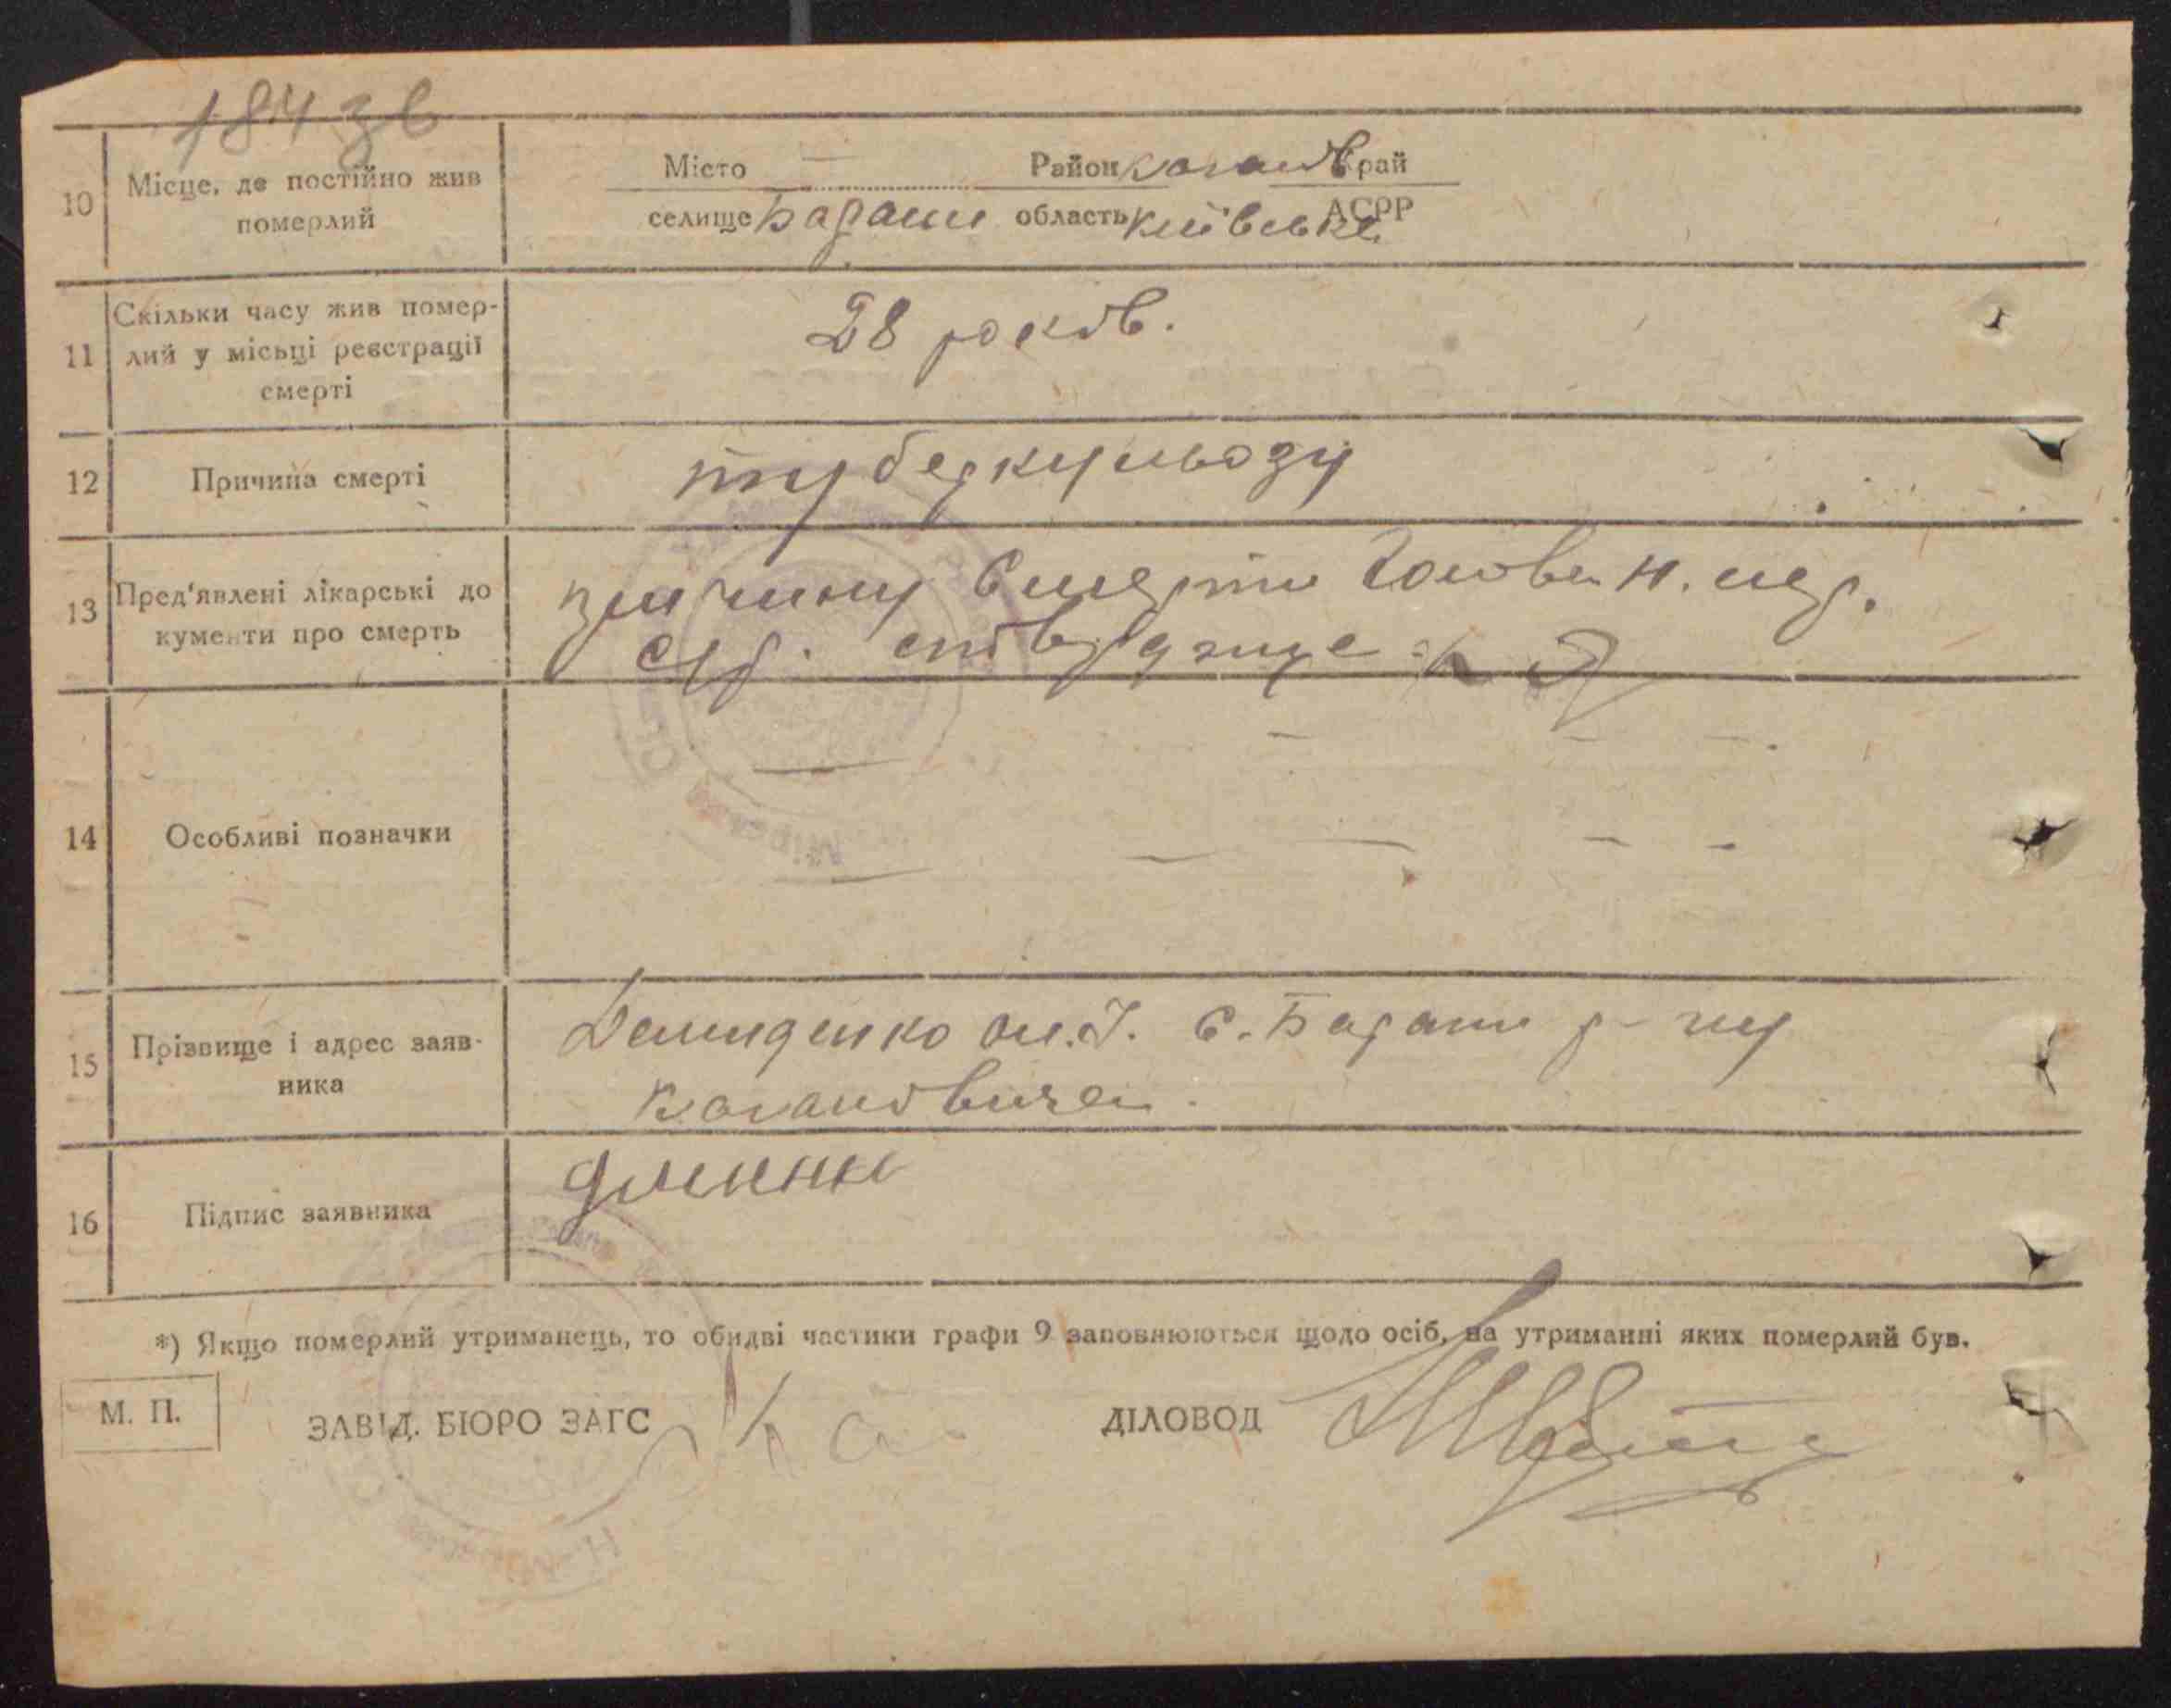 184 зв
10 Місце, де постійно жив померлий
Місто — Район Каганов край
селище Бараши область Київська АСРР
11 Скільки часу жив помер-
лий у місьці реєстрації
смерті
28 років.
12 Причина смерті
туберкульозу
13 Пред'явлені лікарські до
кументи про смерть
причину смерти голова н. мір.
с/р. ствірджує
14 Особливі позначки
15 Прізвище і адрес заяв-
ника
Демиденко с. Бараши р-ну
Кагановича.
16 Підпис заявника
*) Якщо померлий утриманець, то обидві частини графи 9 заповнюються щодо осіб, на утриманні яких померлий був.
М. П.
ЗАВІД. БЮРО ЗАГС
ДІЛОВОД